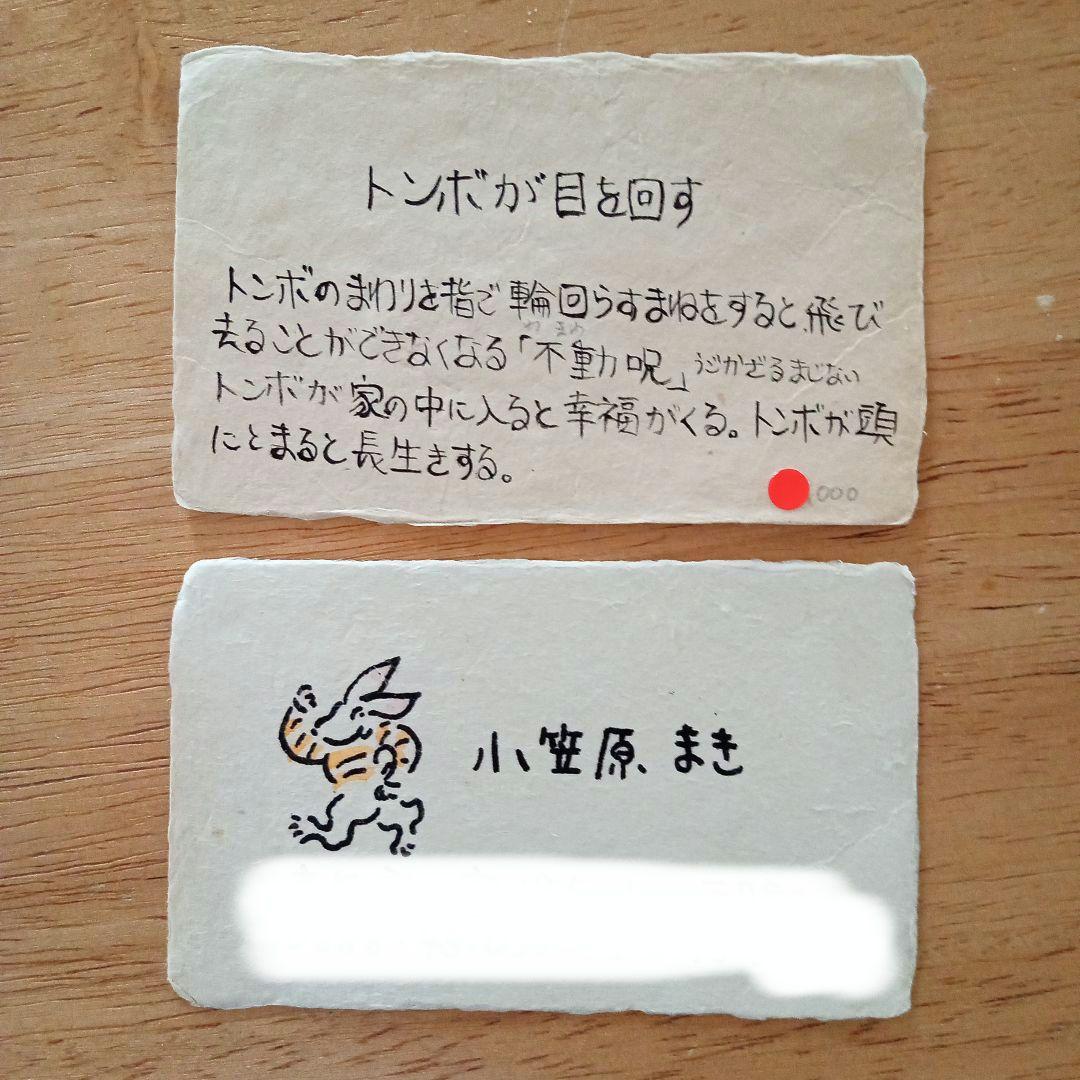 トンボが目を回す
トンボのまわりを指で輪回らすまねをすると飛び
去ることができなくなる「不動呪」うごかざるまじない
トンボが家の中に入ると幸福がくる。トンボが頭
にとまると長生きする。
000
小笠原 まき